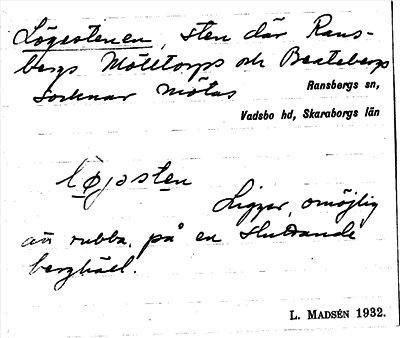 Lögestenen, sten där Rans-
bergs Mölltorps och Beatebergs
socknar mötas
Ransbergs sn,
Vadsbo hd, Skaraborgs län
Ligger, omöjlig
att rubba, på en sluttande
berghäll.
L. MADSÉN 1932.